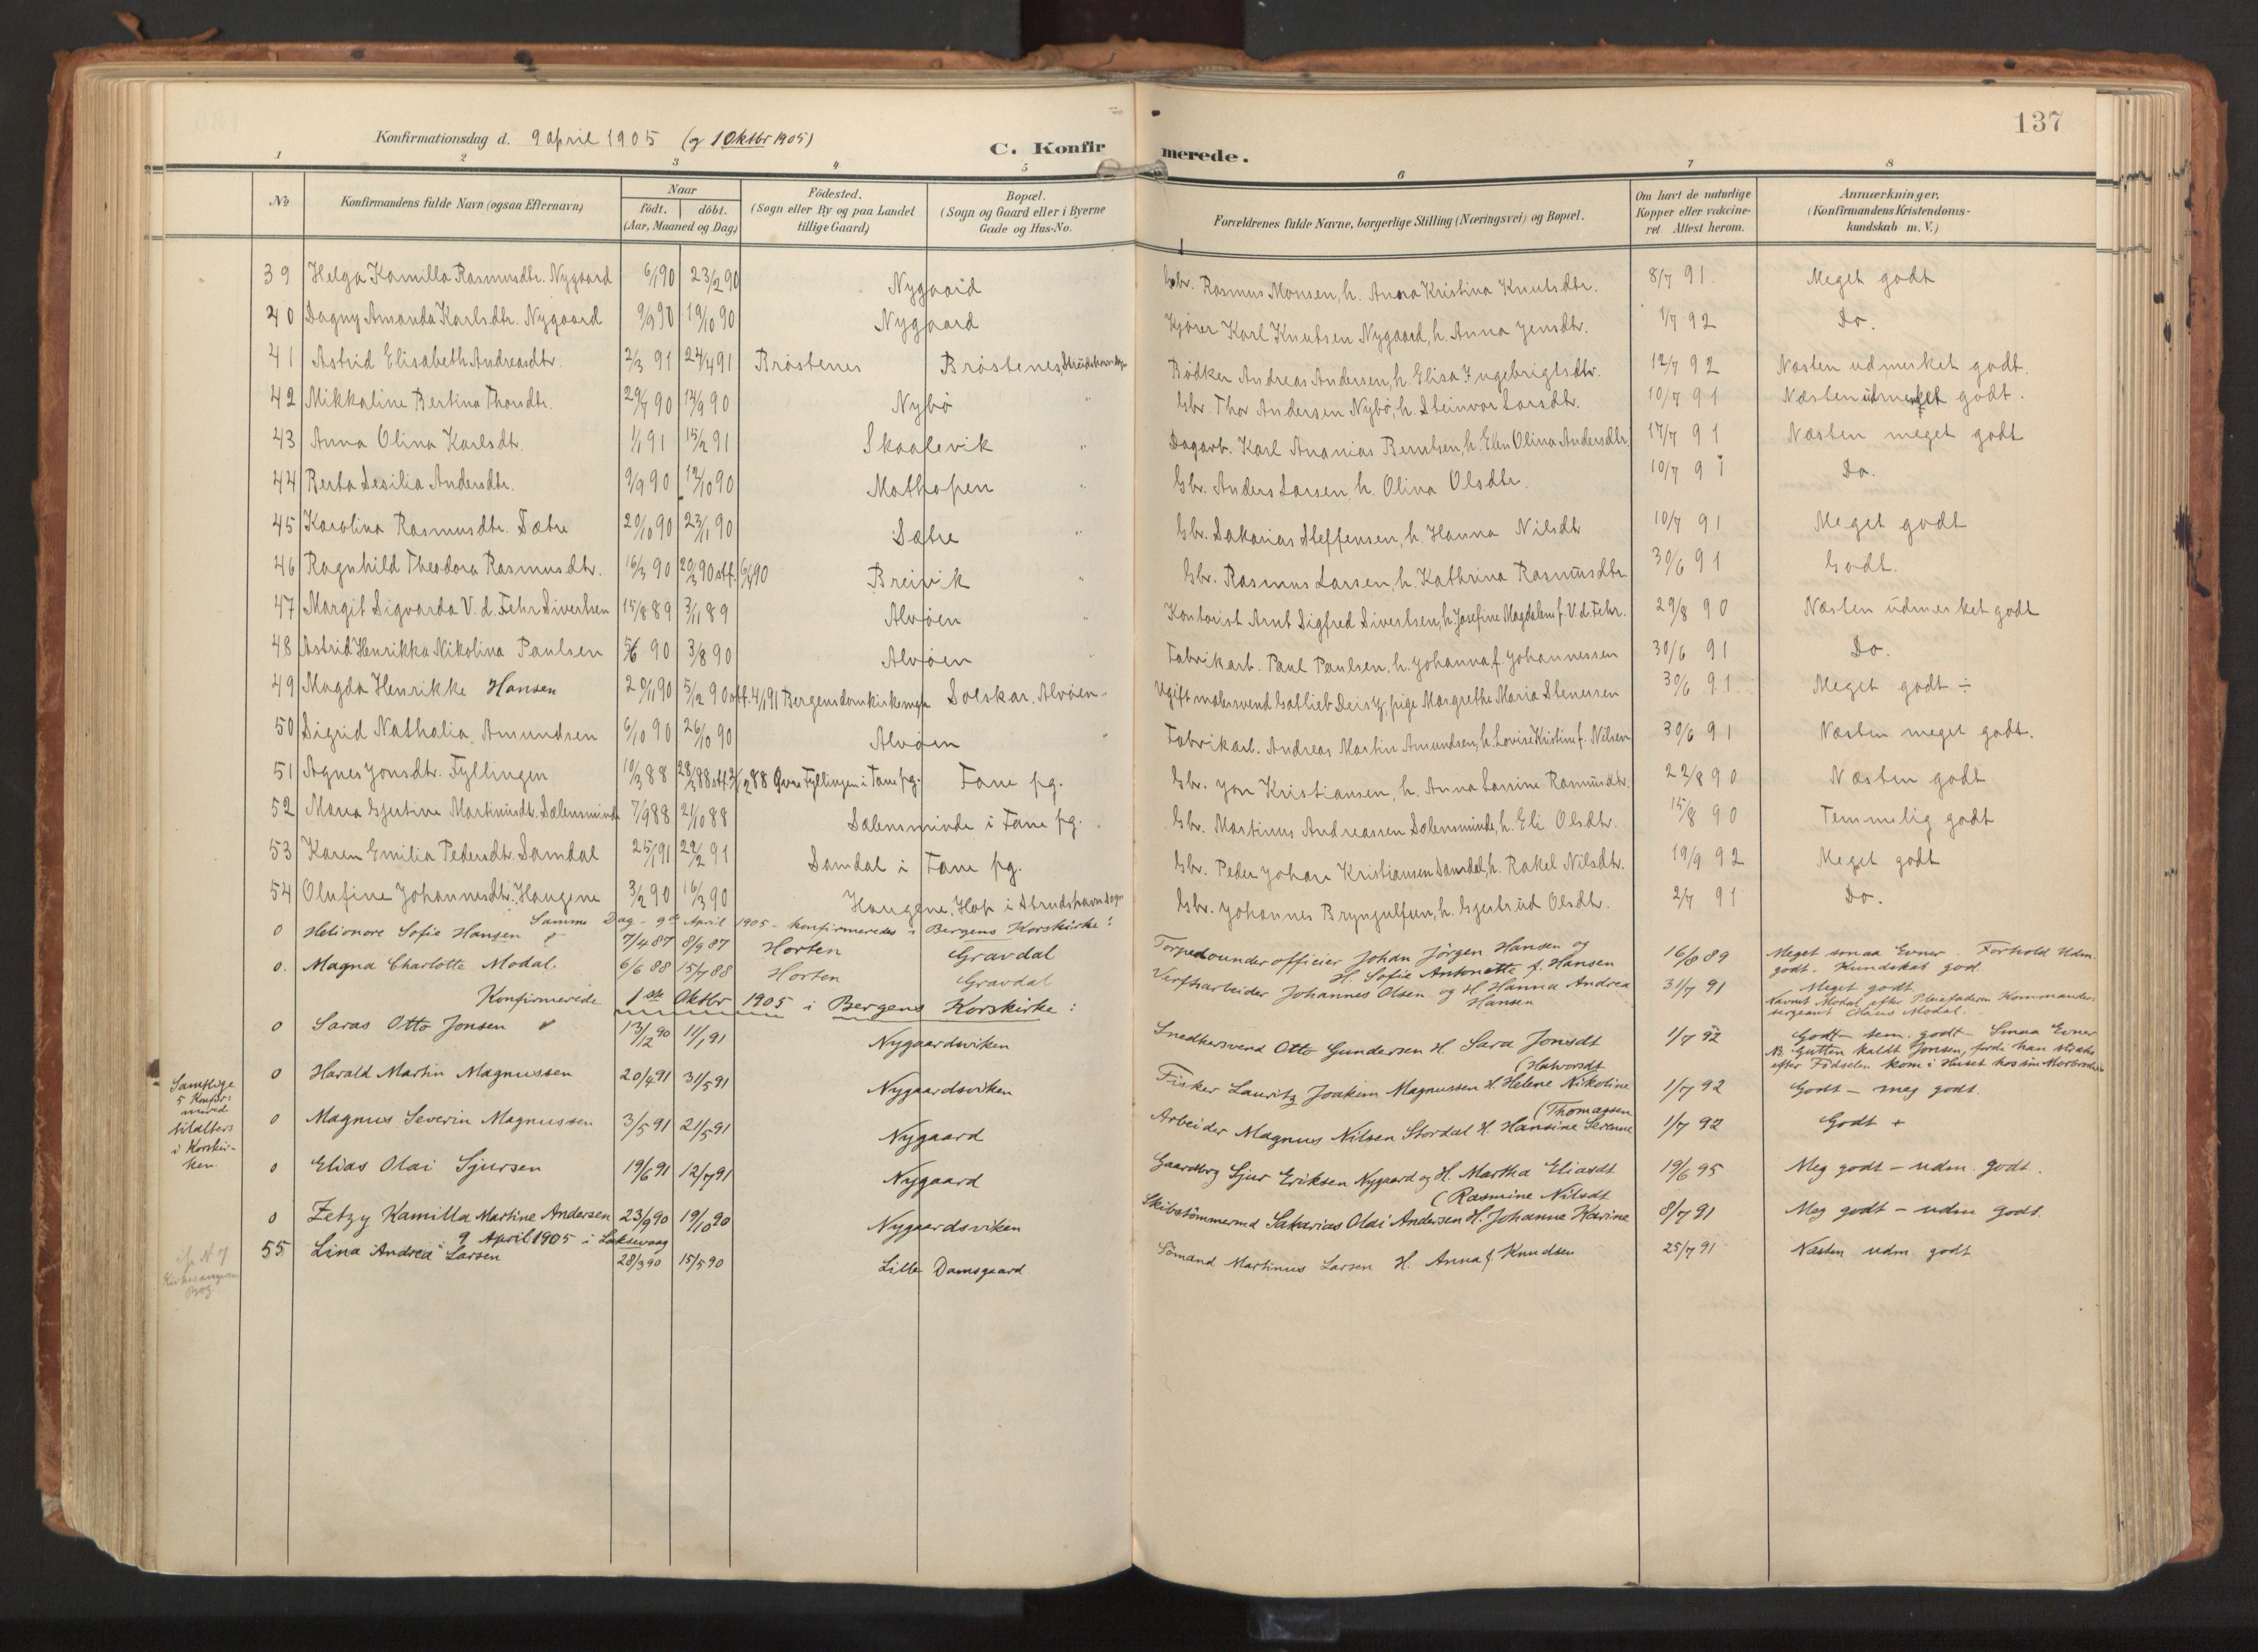 137
Konfirmationsdag d. 9 april 1905 (og 1 Oktbr 1905)
C. Konfirmerede.
1 2 3 4 5 6 7 8
No
Konfirmandens fulde Navn (ogsaa Efternavn)
Naar
födt. döbt.
(Aar, Maaned og Dag)
Födested.
(Sogn eller By og paa Landet
tillige Gaard)
Bopæl.
(Sogn og Gaard eller i Byerne
Gade og Hus-No.
Forældrenes fulde Navne, borgerlige Stilling (Næringsvei) og Bopæl.
Om havt de naturlige
Kopper eller vakcine-
ret. Attest herom.
Anmærkninger.
(Konfirmandens Kristendoms-
kundskab m. V.)
39 Helga Kamilla Rasmusdtr. Nygaard 6/1 90 23/2 90 Nygaard Gbr. Rasmus Monsen, h. Anna Kristina Knutsdtr. 8/7 91 Meget godt
40 Dagny Amanda Karlsdtr. Nygaard 9/9 90 19/10 90 Nygaard Kjörer Karl Knutsen Nygaard, h. Anna Jensdtr. 1/7 92 Do.
41 Astrid Elisabeth Andreasdtr. 2/3 91 24/4 91 Bröstenes Bröstenes, Bödker Andreas Andersen, h. Elisa Ingebrigtsdtr. 12/7 92 Næsten udmerket godt.
42 Mikkaline Bertina Thorsdtr. 29/7 90 14/9 90 Nybö " Gbr. Thor Andersen Nybö, h. Steinvor Larsdtr. 10/7 91 Næsten udmerket godt.
43 Anna Olina Karlsdtr. 1/1 91 15/2 91 Skaalevik " Dagarb. Karl Ananias Berntsen, h. Ellen Olina Andersdtr. 17/7 91 Næsten meget godt
44 Berta Sesilia Andersdtr. 9/9 90 19/10 90 Mathopen " Gbr. Anders Larsen, h. Olina Olsdtr. 10/7 91 Do.
45 Karolina Rasmusdtr. Sætre 20/10 90 23/11 90 Sætre " Gbr. Sakarias Steffensen, h. Hanna Nilsdtr 10/7 91 Meget godt
46 Ragnhild Theodora Rasmusdtr. 16/3 90 20/3 90 stf. 6/4 90 Breivik " Gbr. Rasmus Larsen, h. Kathrina Rasmusdtr. 30/6 91 Godt.
47 Margit Sigvarda V. d. Fehr Sivertsen 15/8 89 3/11 89 Alvöen " Kontorist Arnt Sigfred Sivertsen, h. Josefine Magdalene f. V. d. Fehr. 29/8 90 Næsten udmerket godt
48 Astrid Henrikka Nikolina Paulsen 5/6 90 3/8 90 Alvöen " Fabrikarb. Paul Paulsen, h. Johanna f. Johannessen 30/6 91 Do.
49 Magda Henrikke Hansen 20/11 90 5/12 90 stf. 4/1 91 Bergens domkirkemen. Solskar, Alvöen. Ugift malersvend Gotlieb pige Margrethe Maria Stenessen 30/6 91 Meget godt ÷
50 Sigrid Nathalia Amundsen 6/10 90 26/10 90 Alvöen " Fabrikarb. Andreas Martin Amundsen, h. Lovise Kristine f. Nilsen 30/6 91 Næsten meget godt.
51 Agnes Jonsdtr. Fyllingen 10/3 88 28/3 88 stf. Övre Fyllingen i Fane pg. Fane pg. Gbr. Jon Kristiansen, h. Anna Larsine Rasmusdtr. 22/8 90 Næsten godt
52 Maria Gjertine Martinusdtr. Sælensminde 7/9 88 21/10 88 Sælensminde i Fane pg. Gbr. Martinus Andreassen Sælensminde, h. Eli Olsdtr. 15/8 90 Temmelig godt
53 Karen Emilia Pedersdtr. Samdal 25/1 91 22/2 91 Samdal i Fane pg. Gbr. Peder Johan Kristiansen Samdal, h. Rakel Nilsdtr. 19/9 92 Meget godt
54 Olufine Johannesdtr. Haugene 3/2 90 16/3 90 Haugene, Hop i Strudshavn Sogn Gbr. Johannes Brynjulfsen, h. Gjertrud Olsdtr. 2/7 91 Do.
Samme Dag - 9de April 1905 - konfirmeredes i Bergens Korskirke:
0 Helionore Sofie Hansen 7/4 87 8/9 87 Horten Gravdal Torpedounderofficier Johan Jörgen Hansen og
H. Sofie Antonette f. Hansen 16/8 89 Meget smaa Evner. Forhold Udm.
godt. Kundskab god.
0. Magna Charlotte Modal. 6/6 88 15/7 88 Horten Gravdal Verftharbeider Johannes Olsen og H. Hanna Andrea
Hansen 31/7 91 Meget godt
Navnet Modal efter Pleiefaderen Kommander-
sergeant Olaus Modal.
Konfirmerede 1ste Oktbr 1905 i Bergens Korskirke:
0 Saras Otto Jonsen 13/12 90 11/1 91 Nygaardsviken Snedkersvend Otto Gundersen H. Sara Jonsdt 1/7 92 Godt - tem. godt - Smaa Evner
NB. Gutten kaldt Jonsen, fordi han straks
efter Födselen kom i Huset hos sin Morbroder
Samtlige
5 Konfir-
merede
tilalters
i Korskir-
ken
0 Harald Martin Magnussen 20/4 91 31/5 91 Nygaardsviken Fisker Lauritz Joakim Magnussen H. Helene Nikoline
(Halvorsdt 1/7 92 Godt - meg godt.
0 Magnus Severin Magnussen 3/5 91 21/5 91 Nygaard Arbeider Magnus Nilsen Stordal H. Hansine Severine
(Thomassen 1/7 92 Godt +
0 Elias Olai Sjursen 19/6 91 12/7 91 Nygaard Gaardbrg Sjur Eriksen Nygaard og H. Martha Eliasdt 19/6 95 Meg godt - udm. godt.
0 Zetzy Kamilla Martine Andersen 23/9 90 19/10 90 Nygaardsviken Skibstömmermd Sakarias Olai Andersen H. Johanne Karine
(Rasmine Nilsdt 8/7 91 Meg godt - udm godt.
9 April 1905 i Laksevaag
55 Lina Andrea Larsen 28/3 90 15/5 90 Lille Damsgaard Sömand Martinus Larsen H. Anna f. Knudsen 25/7 91 Næsten udm. godt